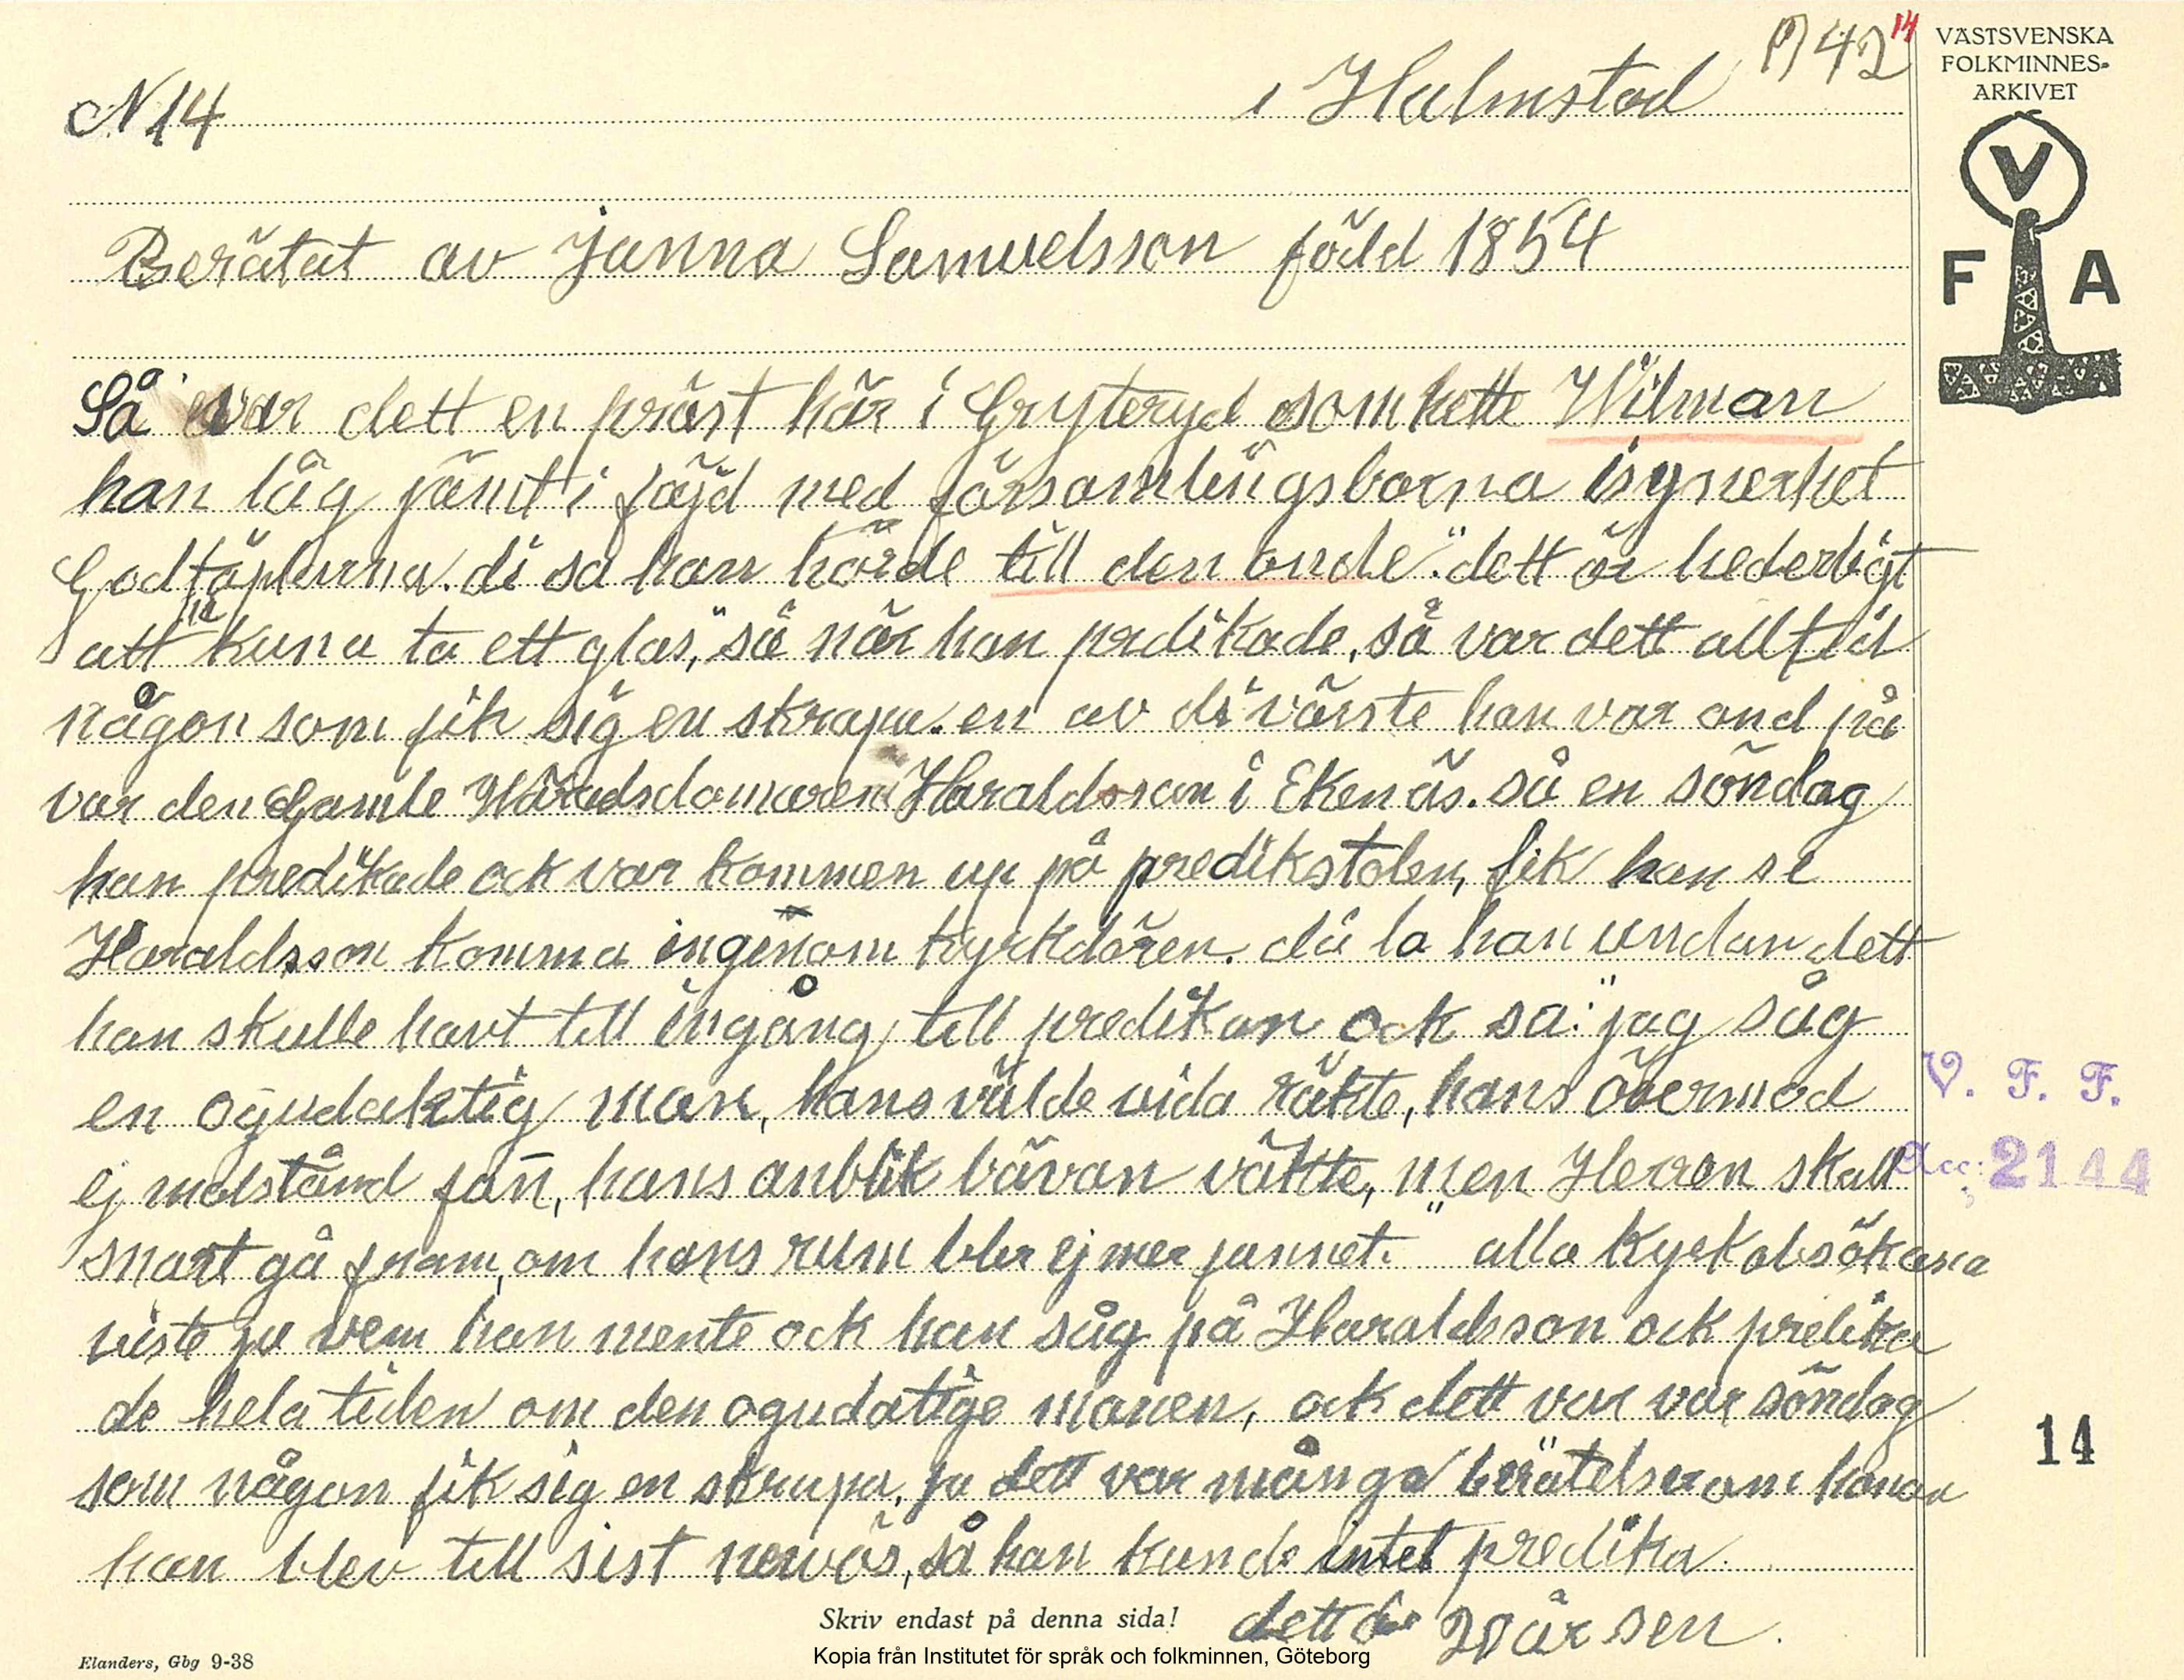 i Halmstad
1942 14
N 14
VÄSTSVENSKA
FOLKMINNES-
ARKIVET
V
F A
Berätat av Janna Samuelsson född 1854
Så var dett en präst här i Gryteryd som hette Wilman
han låg jämt i fäjd med församlingsborna isynerhet
Godtäplurna. di sa han hörde till den onde." dett är hederligt
att kuna ta ett glas," så när han predikade, så var dett alltid
någon som fik sig en skrapa. en av di värste han var ond på
var den Gamle Häradsdomaren Haraldsson i Ekenäs. så en söndag
han predikade ock var kommen up på predikstolen, fik han se
Haraldsson komma ingenom kyrkdören. då la han undan dett
han skulle havt till ingång till predikan ock sa: "jag såg
en ogudaktig man, hans välde vida räkte, hans övermod
ej motstånd fan̄, hans anblik bävan väkte, men Herren skall
snart gå fram, om hans rum bler ej mer funnet." alla kyrkobsökarna
viste ju vem han mente ock han såg på Haraldsson ock predika
de hela tiden om den ogudatige manen, ock dett var var söndag
som någon fik sig en skrupa. ja dett var många berätelser om honom
han blev till sist nervös, så han kunde intet predika.
dett är 20 år sen.
V. F. F.
Acc: 2144
14
Skriv endast på denna sida!
Kopia från Institutet för språk och folkminnen, Göteborg
Elanders, Gbg 9-38